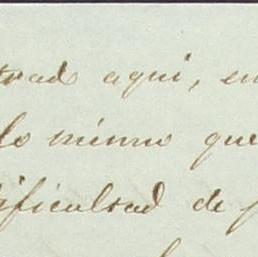 trad aqui, en
lo mismo que
dificultad de p